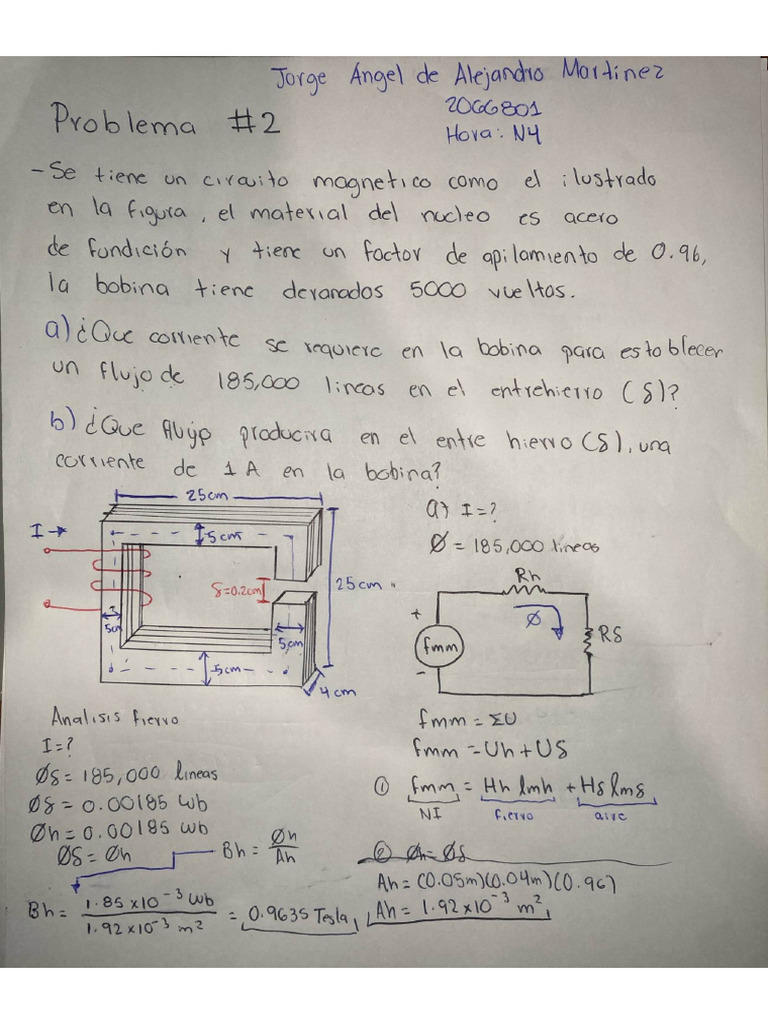 Jorge Angel de Alejandro Martinez
2066801
Hora: N4
Problema #2
- Se tiene un circuito magnetico como el ilustrado
en la figura, el material del nucleo es acero
de fundición y tiene un factor de apilamiento de 0.96,
la bobina tiene devanados 5000 vueltas.
a) ¿Que corriente se requiere en la bobina para establecer
un flujo de 185,000 lineas en el entrehierro (δ)?
b) ¿Que flujo producira en el entre hierro (δ), una
corriente de 1 A en la bobina?
25cm
I →
5cm
δ=0.2cm
25cm
5cm
5cm
5cm
4cm
a) I=?
Ø = 185,000 lineas
Rh
+
fmm
-
Ø
Rδ
fmm = ΣU
fmm = Uh + Uδ
① fmm = Hh lmh + Hδ lmδ
NI fierro aire
Analisis fierro
I=?
Øδ = 185,000 lineas
Øδ = 0.00185 wb
Øh = 0.00185 wb
Øδ = Øh
Bh = Øh / Ah
② Øh = Øδ
Ah = (0.05m)(0.04m)(0.96)
Ah = 1.92x10⁻³ m²
Bh = 1.85x10⁻³ wb / 1.92x10⁻³ m² = 0.9635 Tesla